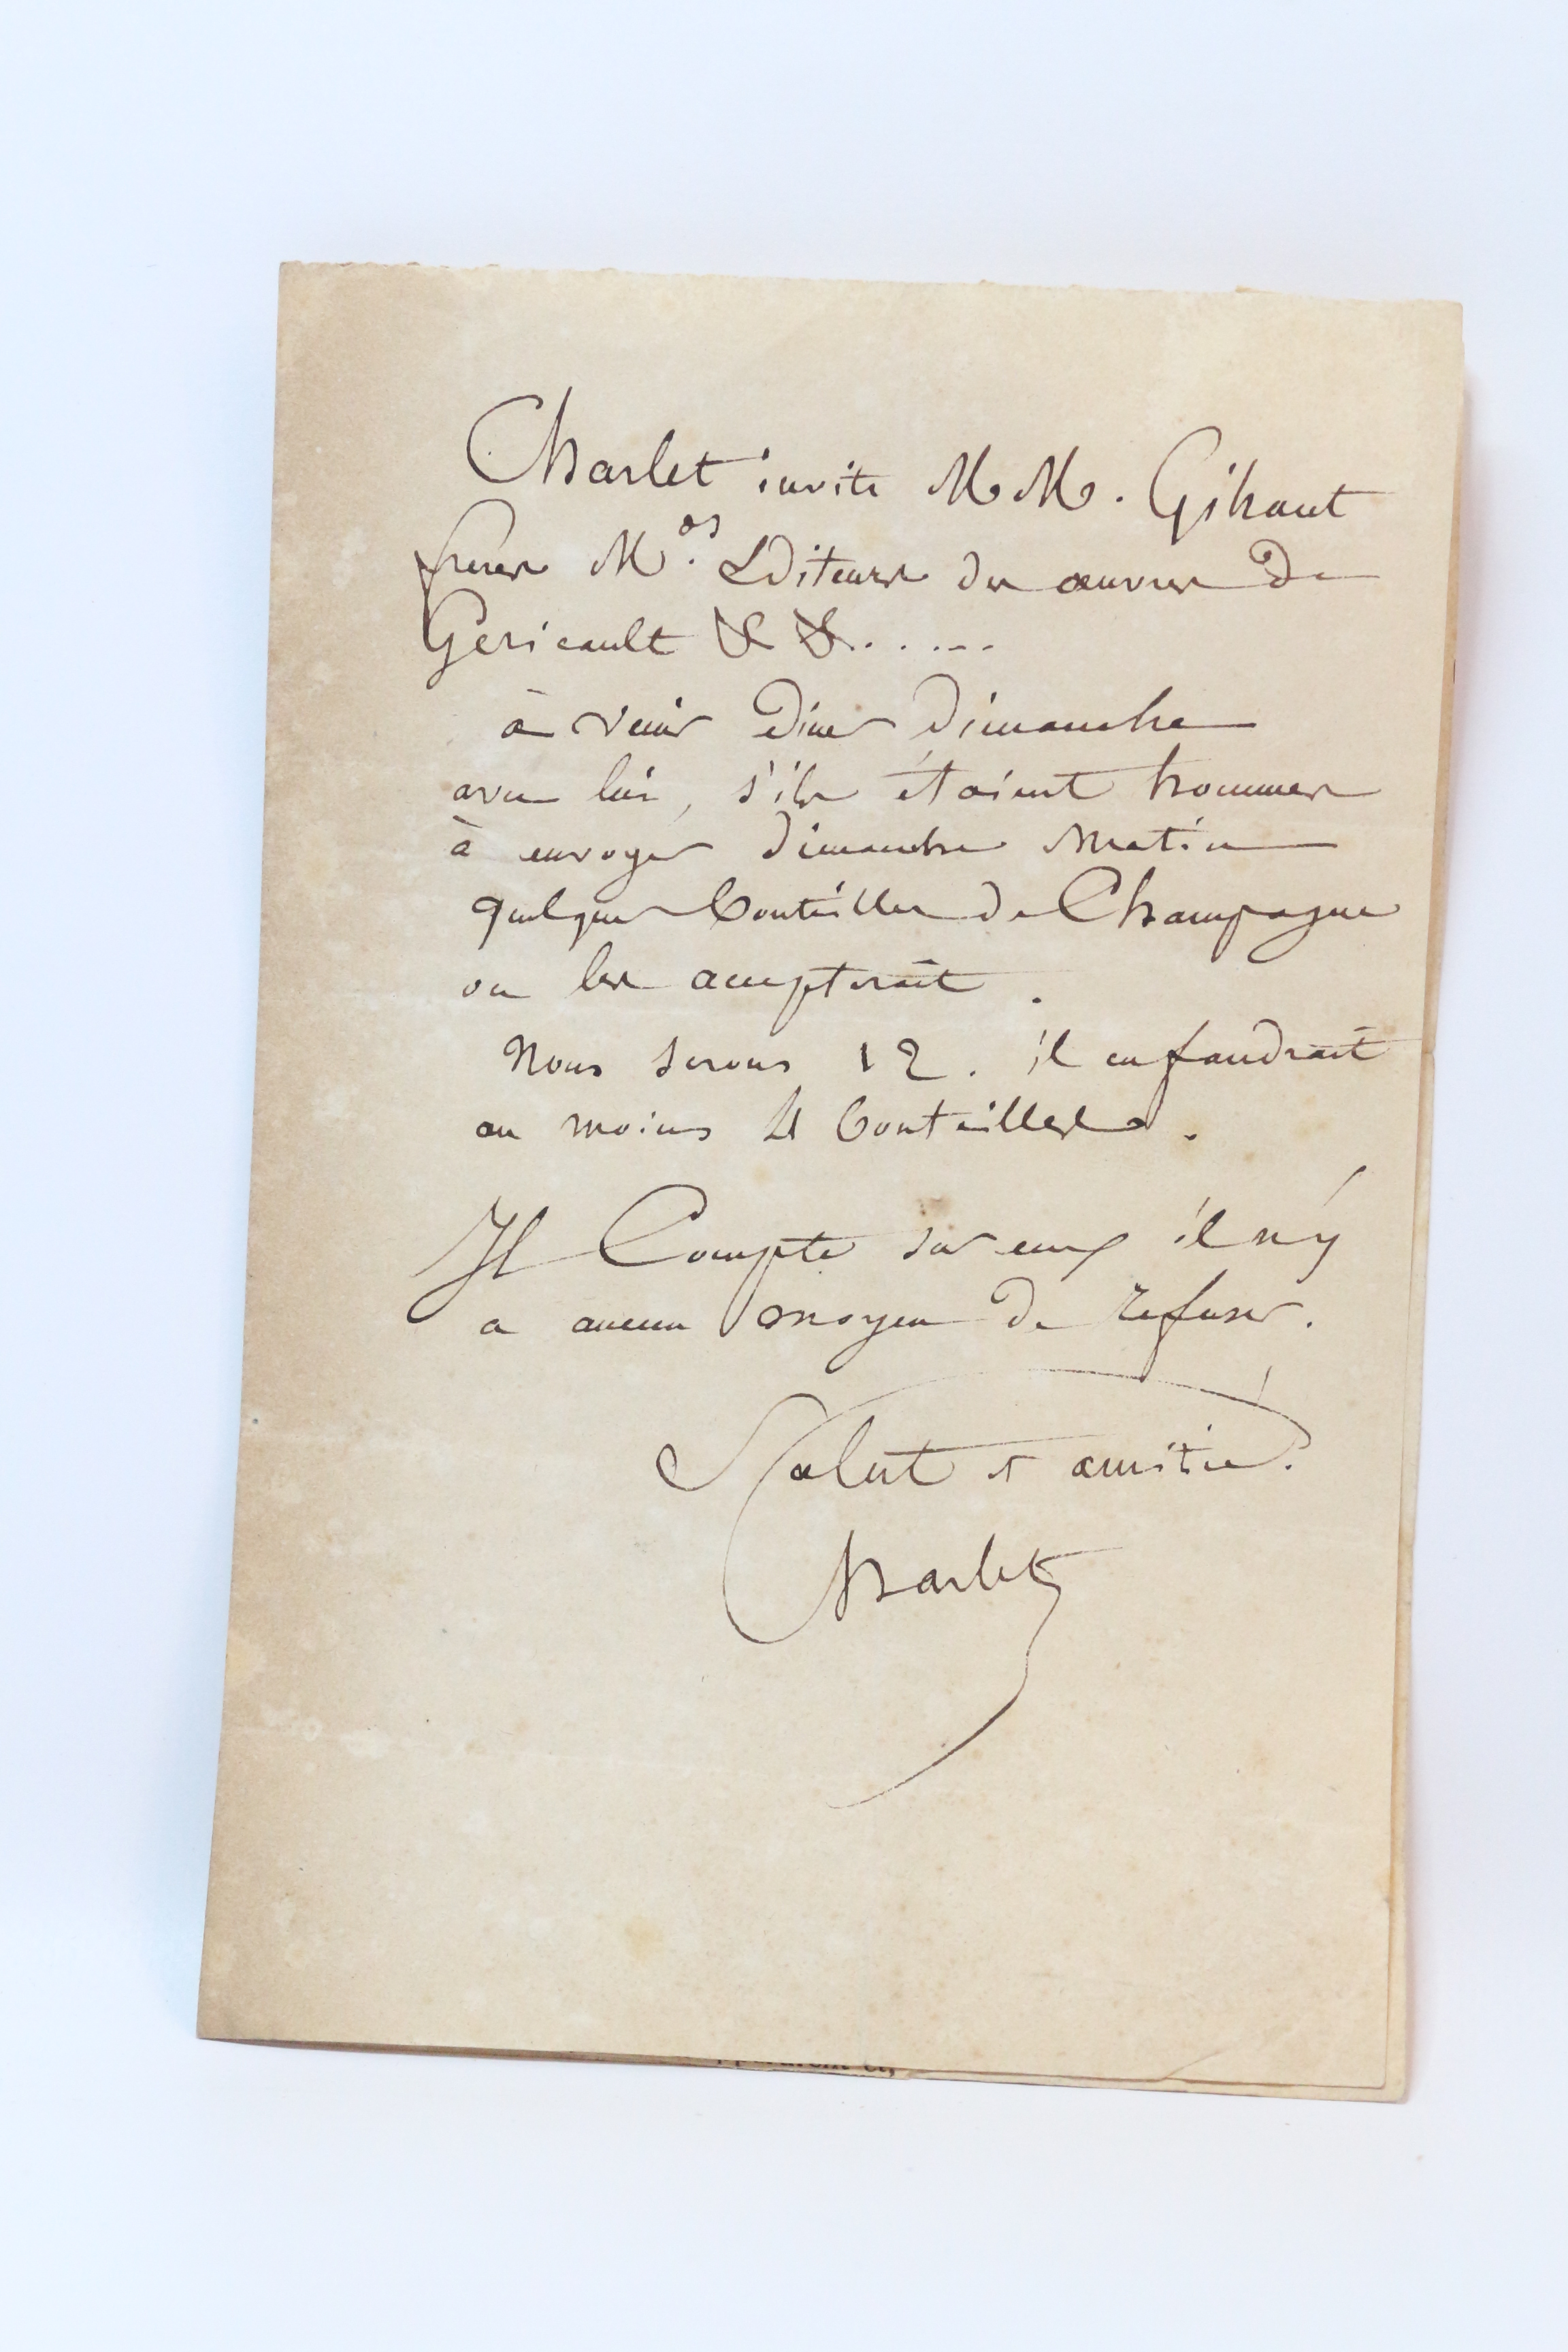 Charlet invite MM. Gihaut
frères Mds. Editeurs des œuvres de
Gericault & & . . . . .
à venir diner dimanche
avec lui, s'ils étaient hommes
à envoyer dimanche matin
quelques bouteilles de Champagne
on les accepterait.
Nous serons 12. il en faudrait
au moins 4 bouteilles.
Il Compte sur eux il n'y
a aucun moyen de refuser.
Salut et amitié.
Charlet